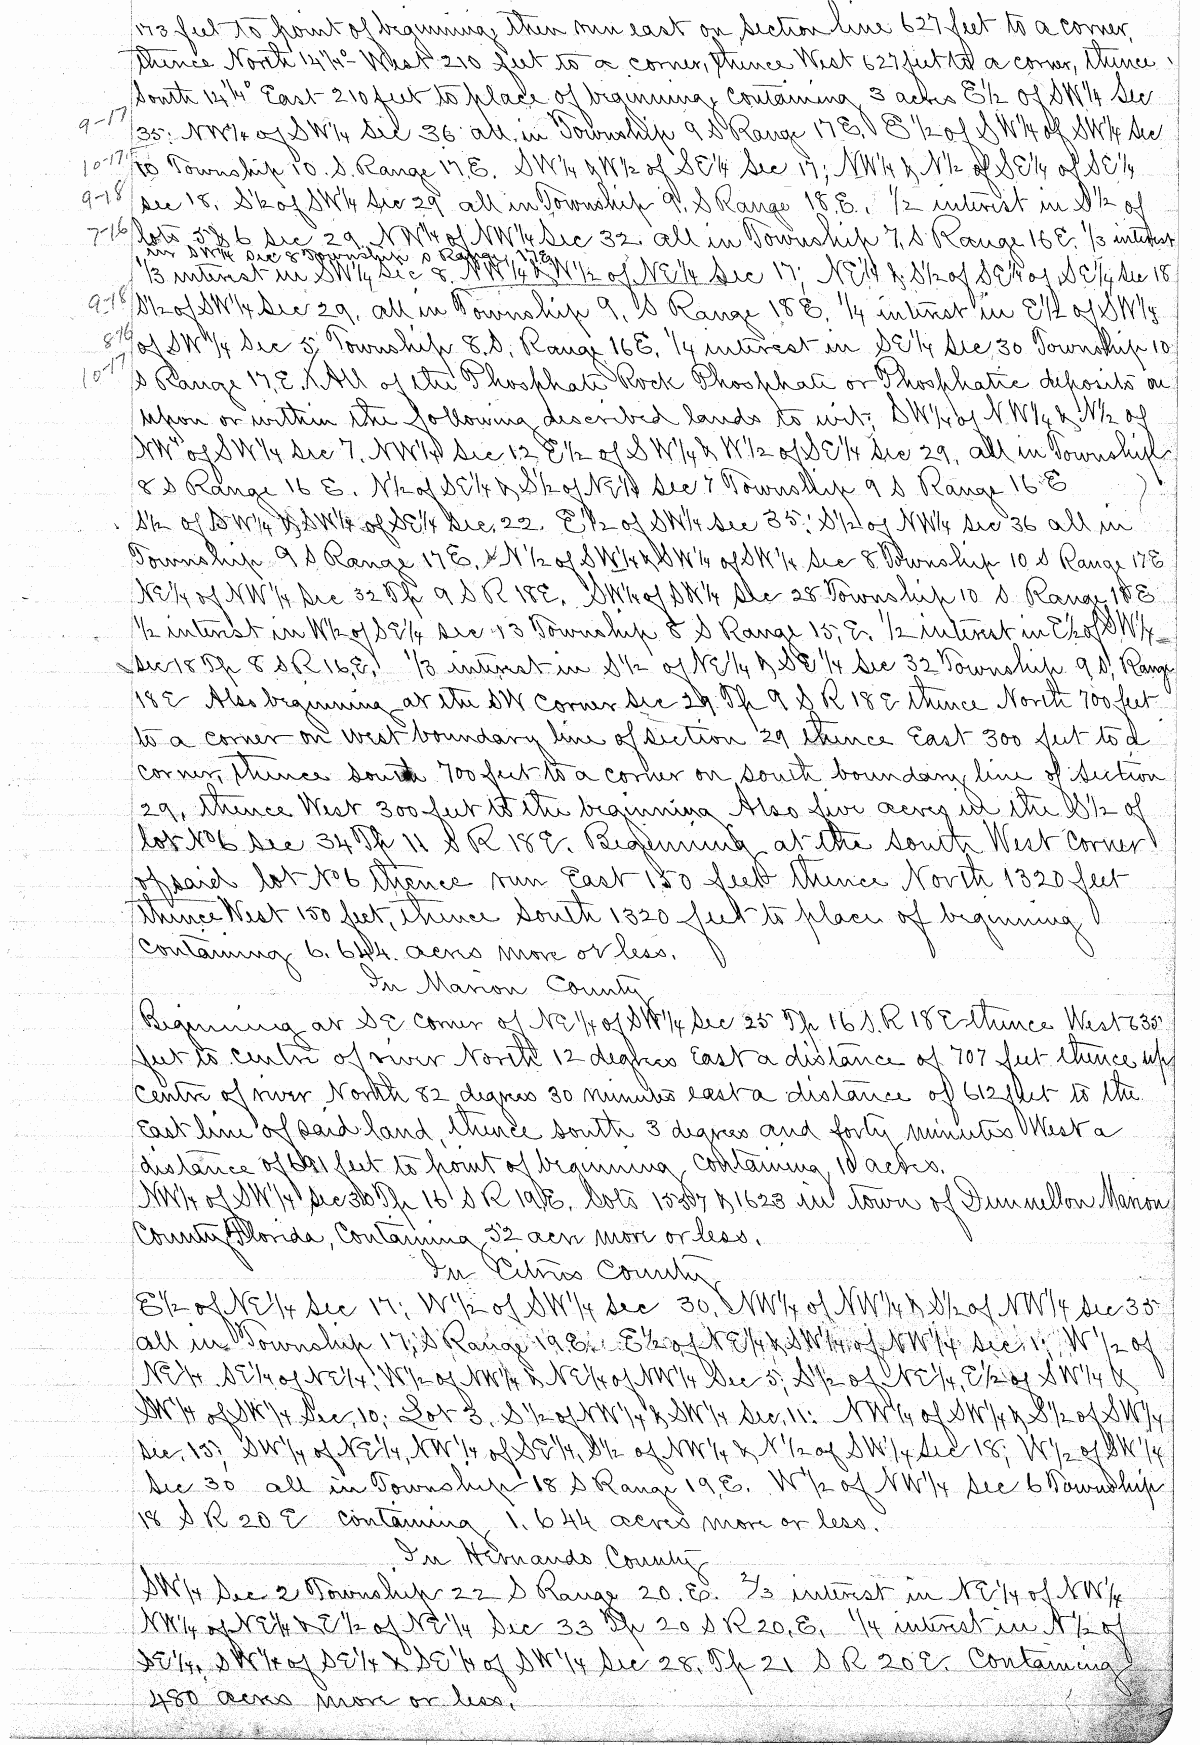 173 feet to point of beginning, then run east on section line 627 feet to a corner,
thence North 14¼° West 210 feet to a corner, thence West 627 feet to a corner, thence
South 14¼° East 210 feet to place of beginning, containing 3 acres E½ of SW¼ Sec
9-17 35: NW¼ of SW¼ Sec 36 all in Township 9 S Range 17 E. E½ of SW¼ of SW¼ Sec
10-17 10 Township 10. S. Range 17, E. SW¼ & W½ of SE¼ Sec 17; NW¼ & N½ of SE¼ of SE¼
9-18 Sec 18, S½ of SW¼ Sec 29 all in Township 9, S Range 18, E. ½ interest in S½ of
7-16 lots 5 & 6 Sec 29, NW¼ of NW¼ Sec 32 all in Township 7, S Range 16 E. ⅓ interest
in SW¼ Sec 8 Township S Range 17 E
⅓ interest in SW¼ Sec 8. NW¼ & W½ of NE¼ Sec 17; NE¼ & S½ of SE¼ of SE¼ Sec 18
9-18 S½ of SW¼ Sec 29, all in Township 9, S Range 18 E, ¼ interest in E½ of SW¼
8-16 of SW¼ Sec 5, Township 8. S, Range 16 E, ¼ interest in SE¼ Sec 30 Township 10
10-17 S Range 17, E. All of the Phosphate Rock Phosphate or Phosphatic deposits on
upon or within the following described lands to wit; SW¼ of NW¼ & N½ of
NW¼ of SW¼ Sec 7, NW¼ Sec 12 E½ of SW¼ & W½ of SE¼ Sec 29, all in Township
8 S Range 16 E. N½ of SE¼ & S½ of NE¼ Sec 7 Township 9 S Range 16 E
S½ of SW¼ & SW¼ of SE¼ Sec. 22. E½ of SW¼ Sec 35: S½ of NW¼ Sec 36 all in
Township 9 S Range 17 E. N½ of SW¼ & SW¼ of SW¼ Sec 8 Township 10 S Range 17 E
NE¼ of NW¼ Sec 32 Tp 9 S R 18 E. SW¼ of SW¼ Sec 28 Township 10 S. Range 18 E
½ interest in W½ of SE¼ Sec 13 Township 8 S Range 15, E. ½ interest in E½ of SW¼
Sec 18 Tp 8 S R 16 E. ⅓ interest in S½ of NE¼ & SE¼ Sec 32 Township 9 S, Range
18 E Also beginning at the SW Corner Sec 29 Tp 9 S R 18 E thence North 700 feet
to a corner on west boundary line of section 29 thence East 300 feet to a
corner, thence south 700 feet to a corner on south boundary line of section
29, thence West 300 feet to the beginning Also five acres in the S½ of
lot No 6 Sec 34 Tp 11 S R 18 E. Beginning at the South West corner
of said lot No 6 thence run East 150 feet thence North 1320 feet
thence West 150 feet, thence South 1320 feet to place of beginning
Containing 6.644. acres more or less.
In Marion County
Beginning at SE corner of NE¼ of SW¼ Sec 25 Tp 16 S. R 18 E thence West 635
feet to centre of river North 12 degrees East a distance of 707 feet thence up
centre of river North 82 degrees 30 minutes east a distance of 612 feet to the
East line of said land, thence south 3 degrees and forty minutes West a
distance of 691 feet to point of beginning, containing 10 acres.
NW¼ of SW¼ Sec 30 Tp 16 S R 19, E. lots 1557 & 1623 in town of Dunnellon Marion
County Florida, Containing 52 acres more or less.
In Citrus County
E½ of NE¼ Sec 17; W½ of SW¼ Sec 30, NW¼ of NW¼ & S½ of NW¼ Sec 35
all in Township 17, S Range 19. E. E½ of NE¼ & SW¼ of NW¼ Sec. 1; W½ of
NE¼ SE¼ of NE¼, W½ of NW¼ & NE¼ of NW¼ Sec 5; S½ of NE¼, E½ of SW¼ &
SW¼ of SW¼ Sec. 10; Lot 3, S½ of NW¼ & SW¼ Sec. 11: NW¼ of SW¼ & S½ of SW¼
Sec. 15; SW¼ of NE¼, NW¼ of SE¼, S½ of NW¼ & N½ of SW¼ Sec 18; W½ of SW¼
Sec 30 all in Township 18 S Range 19, E. W½ of NW¼ Sec 6 Township
18 S R 20 E containing 1.644 acres more or less.
In Hernando County
SW¼ Sec 2 Township 22 S Range 20. E. ⅔ interest in NE¼ of NW¼
NW¼ of NE¼ & E½ of NE¼ Sec 33 Tp 20 S R 20, E, ¼ interest in N½ of
SE¼, SW¼ of SE¼ & SE¼ of SW¼ Sec 28, Tp 21 S R 20 E. Containing
480 acres more or less.